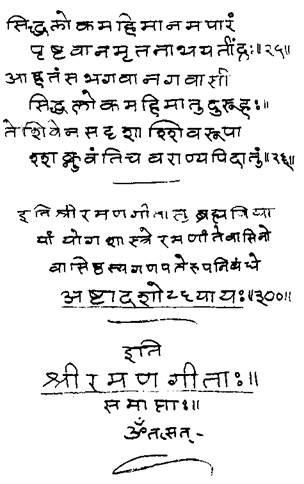 सिद्धलोकमहिमानमपारं
पृष्टवानमृतनाथयतींद्रः॥२५॥
आहतंसभगवानगवासी
सिद्धलोकमहिमातुदुरूहः॥
तेशिवेनसदृशाश्शिवरूपा
श्शक्नुवंतिचवराण्यपिदातुं॥२६॥
इतिश्रीरमणगीतासु ब्रह्मविद्या
यां योगशास्त्रेरमणांतेवासिनो
वासिष्ठस्यगणपतेरुपनिबंधे
अष्टादशोऽध्यायः॥३००॥
इति
श्रीरमणगीताः॥
समाप्ताः॥
ॐतत्सत्-